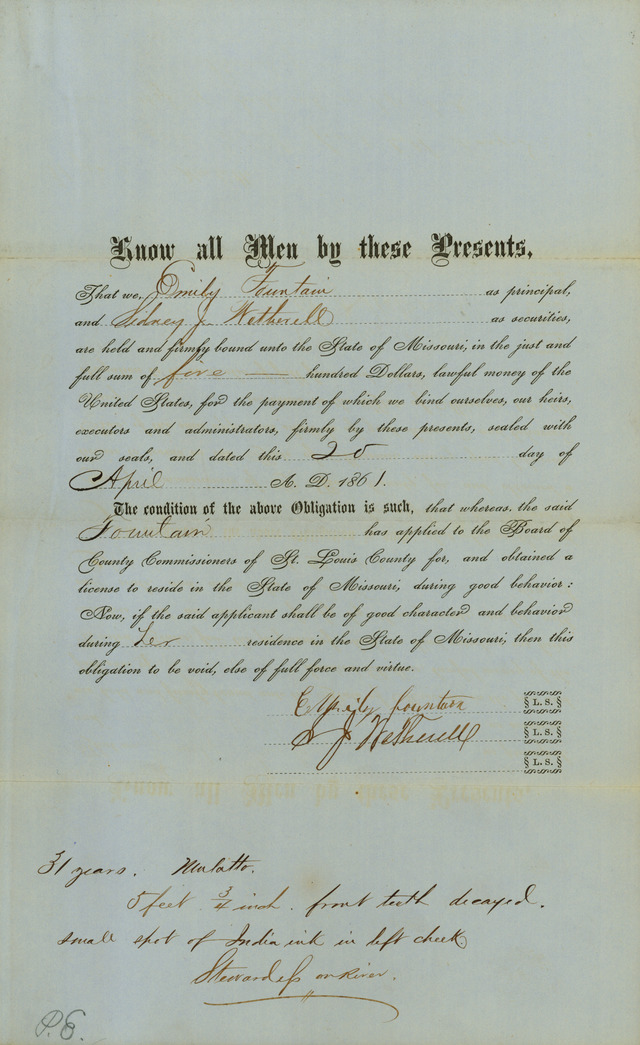 Know all Men by these Presents,
That we, Emily Fountain as principal,
and Sidney J Wetherell as securities,
are held and firmly bound unto the State of Missouri, in the just and
full sum of five — hundred Dollars, lawful money of the
United States, for the payment of which we bind ourselves, our heirs,
executors and administrators, firmly by these presents, sealed with
our seals, and dated this 20 day of
April A. D. 1861.
The condition of the above Obligation is such, that whereas, the said
Fountain has applied to the Board of
County Commissioners of St. Louis County for, and obtained a
license to reside in the State of Missouri, during good behavior:
Now, if the said applicant shall be of good character and behavior
during her residence in the State of Missouri, then this
obligation to be void, else of full force and virtue.
Emily fountain L. S.
S J Wetherell L. S.
L. S.
31 years. Mulatto.
5 feet 3/4 inch. front teeth decayed.
small spot of India ink in left cheek
Stewardess on River.
P. 6.